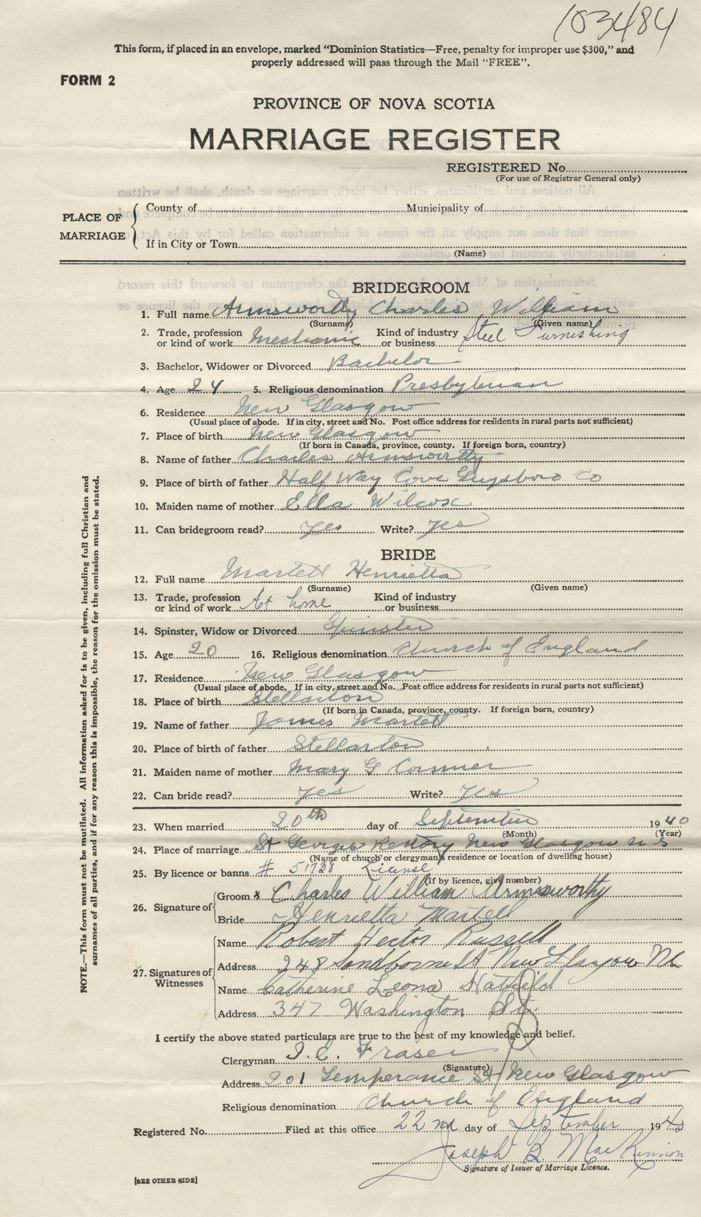 103484
This form, if placed in an envelope, marked "Dominion Statistics—Free, penalty for improper use $300," and
properly addressed will pass through the Mail "FREE".
FORM 2
PROVINCE OF NOVA SCOTIA
MARRIAGE REGISTER
REGISTERED No.
(For use of Registrar General only)
PLACE OF MARRIAGE
County of Municipality of
If in City or Town
(Name)
BRIDEGROOM
1. Full name Armsworthy Charles William
(Surname) (Given name)
2. Trade, profession or kind of work Mechanic Kind of industry or business Steel Furnishing
3. Bachelor, Widower or Divorced Bachelor
4. Age 24 5. Religious denomination Presbyterian
6. Residence New Glasgow
(Usual place of abode. If in city, street and No. Post office address for residents in rural parts not sufficient)
7. Place of birth New Glasgow
(If born in Canada, province, county. If foreign born, country)
8. Name of father Charles Armsworthy
9. Place of birth of father Half Way Cove Guysboro Co
10. Maiden name of mother Ella Wilcox
11. Can bridegroom read? yes Write? yes
BRIDE
12. Full name Martell Henrietta
(Surname) (Given name)
13. Trade, profession or kind of work At home Kind of industry or business
14. Spinster, Widow or Divorced Spinster
15. Age 20 16. Religious denomination Church of England
17. Residence New Glasgow
(Usual place of abode. If in city, street and No. Post office address for residents in rural parts not sufficient)
18. Place of birth Stellarton
(If born in Canada, province, county. If foreign born, country)
19. Name of father James Martell
20. Place of birth of father Stellarton
21. Maiden name of mother Mary G Cormier
22. Can bride read? yes Write? yes
23. When married 20th day of September 1940
(Month) (Year)
24. Place of marriage St Georges Rectory New Glasgow N S
(Name of church or clergyman's residence or location of dwelling house)
25. By licence or banns # 51728 License
(If by licence, give number)
26. Signature of
Groom x Charles William Armsworthy
Bride Henrietta Martell
27. Signatures of Witnesses
Name Robert Hector Russell
Address 248 St New Glasgow
Name Catherine Leona Hatfield
Address 347 Washington St.
I certify the above stated particulars are true to the best of my knowledge and belief.
Clergyman Fraser
(Signature)
Address 201 Temperance St New Glasgow
Religious denomination Church of England
Registered No. Filed at this office 22nd day of September 1940
Joseph B. MacKinnon
Signature of Issuer of Marriage Licence.
[SEE OTHER SIDE]
NOTE.—This form must not be mutilated. All information asked for is to be given, including full Christian and
surnames of all parties, and if for any reason this is impossible, the reason for the omission must be stated.